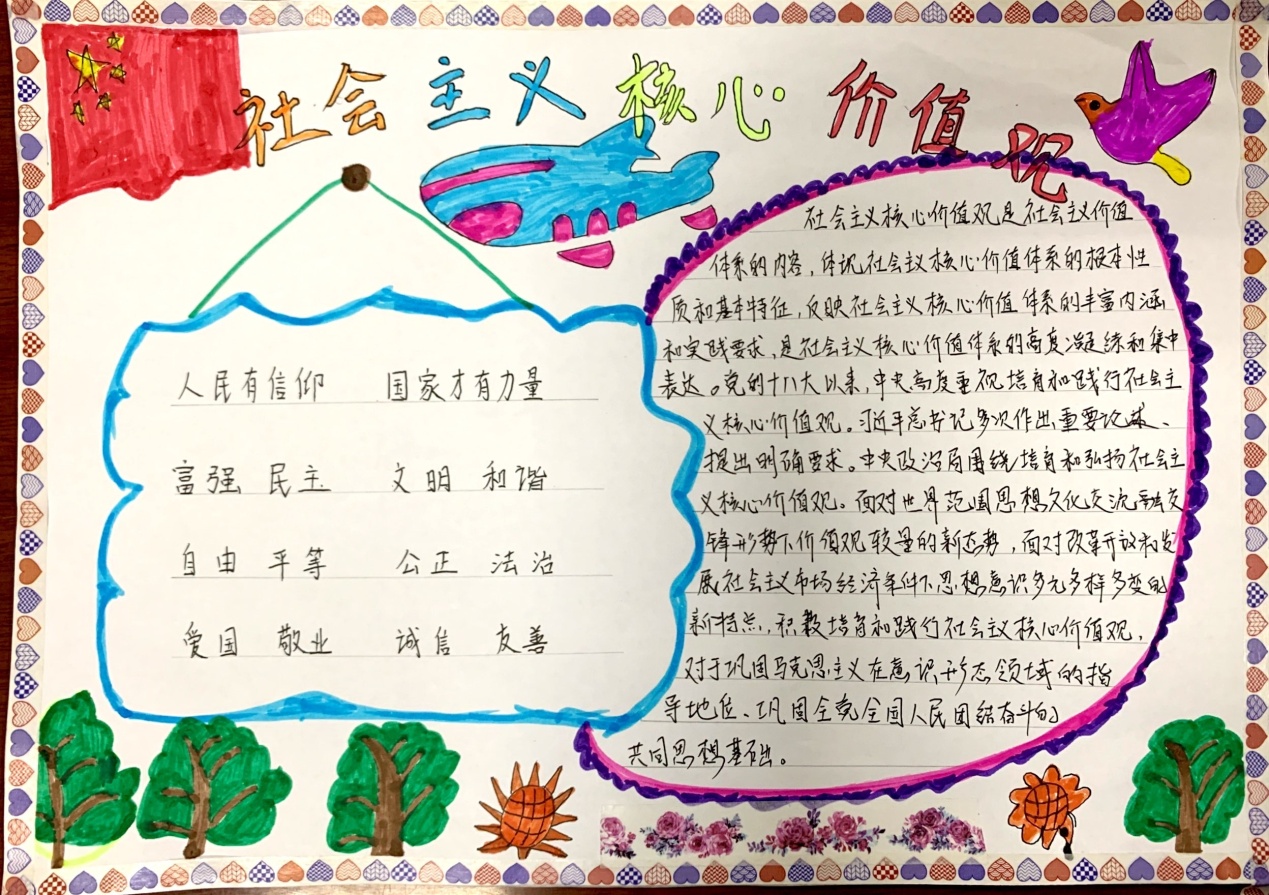 社会主义核心价值观
人民有信仰 国家才有力量
富强 民主 文明 和谐
自由 平等 公正 法治
爱国 敬业 诚信 友善
社会主义核心价值观是社会主义价值
体系的内容，体现社会主义核心价值体系的根本性
质和基本特征，反映社会主义核心价值体系的丰富内涵
和实践要求，是社会主义核心价值体系的高度凝练和集中
表达。党的十八大以来，中央高度重视培育和践行社会主
义核心价值观。习近平总书记多次作出重要论述、
提出明确要求。中央政治局围绕培育和弘扬社会主
义核心价值观。面对世界范围思想文化交流融交
锋形势下价值观较量的新态势，面对改革开放和发
展社会主义市场经济条件下思想意识多元多样多变的
新特点，积极培育和践行社会主义核心价值观，
对于巩固马克思主义在意识形态领域的指
导地位、巩固全党全国人民团结奋斗的
共同思想基础。